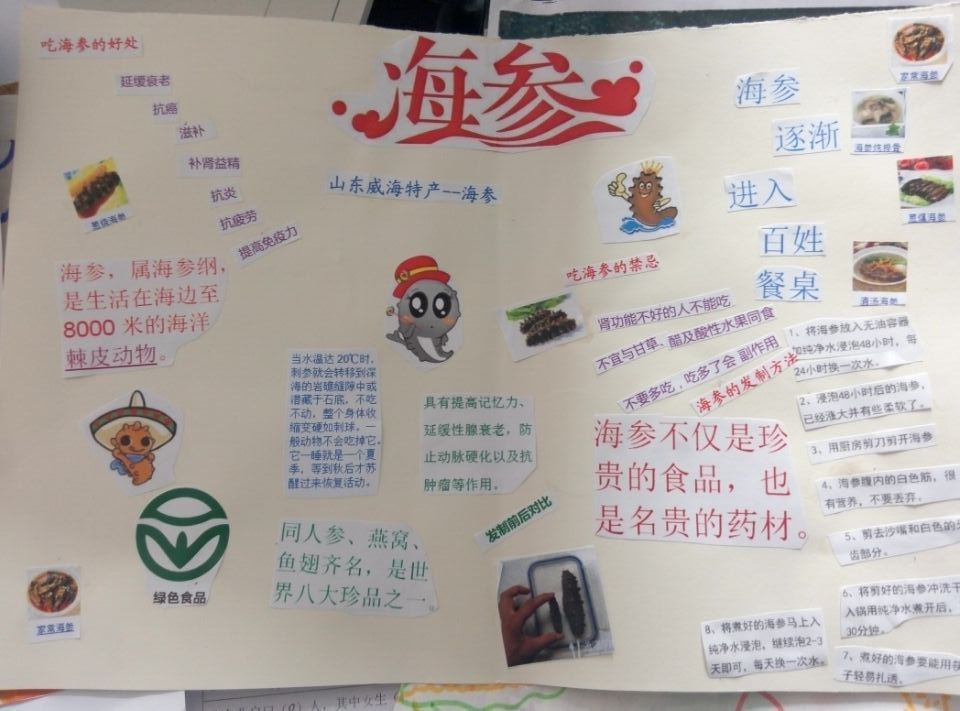 吃海参的好处
延缓衰老
抗癌
滋补
补肾益精
抗炎
抗疲劳
提高免疫力
葱烧海参
海参
山东威海特产--海参
海参
逐渐
进入
百姓
餐桌
家常海参
海参炖排骨
葱爆海参
清汤海参
海参，属海参纲，
是生活在海边至
8000 米的海洋
棘皮动物。
当水温达 20℃时，
刺参就会转移到深
海的岩礁缝隙中或
潜藏于石底，不吃
不动，整个身体收
缩变硬如刺球，一
般动物不会吃掉它。
它一睡就是一个夏
季，等到秋后才苏
醒过来恢复活动。
具有提高记忆力、
延缓性腺衰老，防
止动脉硬化以及抗
肿瘤等作用。
同人参、燕窝、
鱼翅齐名，是世
界八大珍品之一。
绿色食品
家常海参
吃海参的禁忌
肾功能不好的人不能吃
不宜与甘草、醋及酸性水果同食
不要多吃，吃多了会 副作用
海参的发制方法
海参不仅是珍
贵的食品，也
是名贵的药材。
发制前后对比
1、将海参放入无油容器
加纯净水浸泡48小时，每
24小时换一次水。
2、浸泡48小时后的海参，
已经涨大并有些柔软了。
3、用厨房剪刀剪开海参
4、海参腹内的白色筋，很
有营养，不要丢弃。
5、剪去沙嘴和白色的牙
齿部分。
6、将剪好的海参冲洗干
入锅用纯净水煮开后，
30分钟。
7、煮好的海参要能用筷
子轻易扎透。
8、将煮好的海参马上入
纯净水浸泡，继续泡2-3
天即可，每天换一次水。
人，其中女生